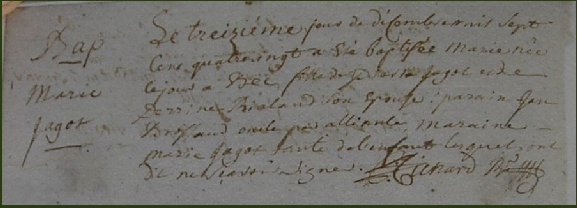 Bap
Marie
Jagot
Le treizième jour de décembre mil sept
cent quatrevingt a été baptisée marie née
ce jour a fille de jagot et de
perrine son epouse : parain jan
Brossaud oncle par alliance, maraine
marie jagot tante de lenfant lesquels ont
dit ne scavoir signer. Richard